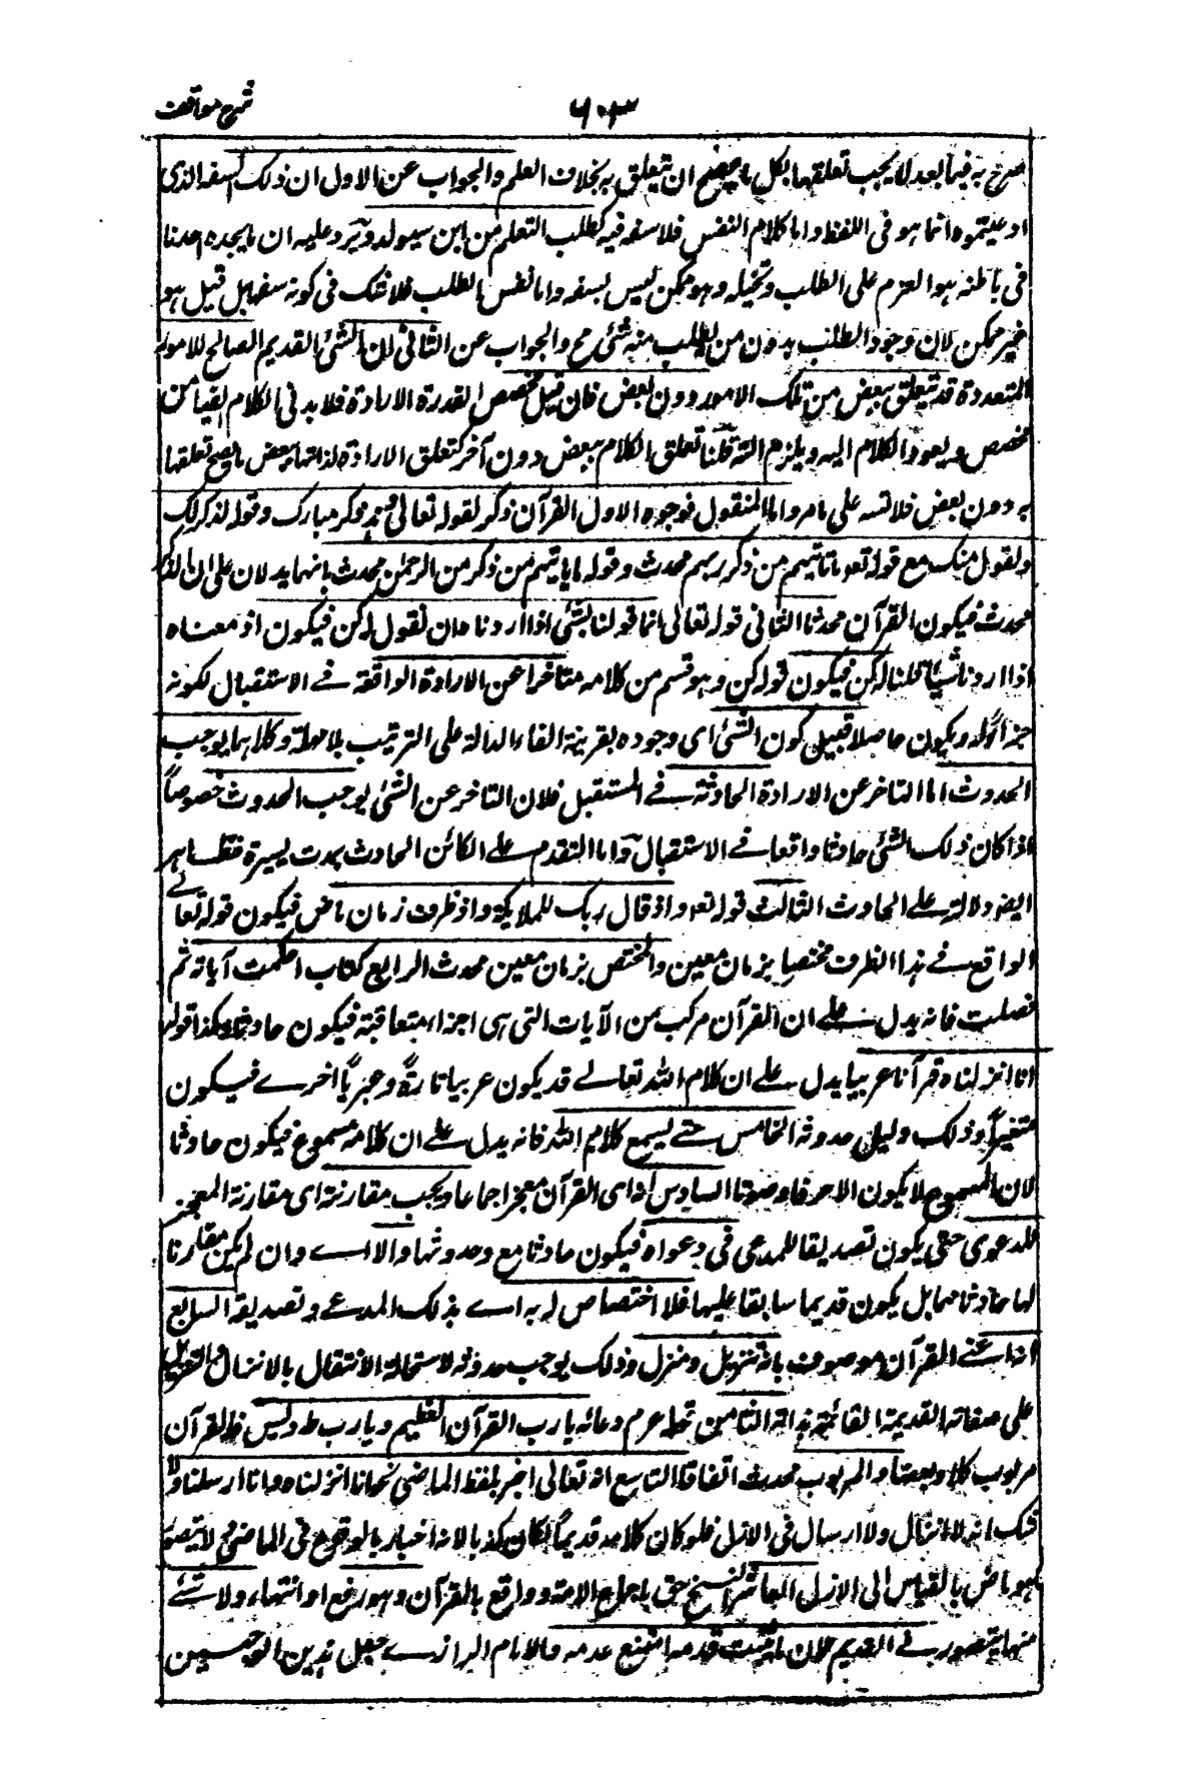 شرح مواقف
٦٠٣
صرح به فيما بعد لا يجب تعلقها بكل ما يصح ان يتعلق به بخلاف العلم والجواب عن الاول ان ذلك السفه الذى
ادعيتموه انما هو فى اللفظ واما كلام النفس فلا سفه فيه كطلب التعلم من ابن سيولد ويرد عليه ان ما يجده احدنا
فى باطنه هو العزم على الطلب وتخيله وهو ممكن ليس بسفه واما نفس الطلب فلا شك فى كونه سفها بل قيل هو
غير ممكن لان وجود الطلب بدون من يطلب منه شئ مح والجواب عن الثانى ان الشئ القديم الصالح للامور
المتعددة قد يتعلق ببعض من تلك الامور دون بعض فان قيل مخصص القدرة الارادة فلا بد فى الكلام ايضا من
مخصص ويعود الكلام اليه ويلزم التسه قلنا تعلق الكلام ببعض دون آخر كتعلق الارادة لذاتها ببعض ما يصح تعلقها
به دون بعض فلا تسه على ما مر واما المنقول فوجوه الاول القرآن ذكر لقوله تعالى وهذا ذكر مبارك وقوله لذكر لك
ولقومك مع قوله تعه ما تاتيهم من ذكر ربهم محدث وقوله ما ياتيهم من ذكر من الرحمن محدث فانهما يدلان على ان الذكر
محدث فيكون القرآن محدثا الثانى قوله تعالى انما قولنا لشئ اذا اردناه ان نقول له كن فيكون اذ معناه
اذا اردنا شيئا قلنا له كن فيكون قوله كن وهو قسم من كلامه متاخرا عن الارادة الواقعة فے الاستقبال لكونه
جزاء له ويكون حاصلا قبيل كون الشئ اى وجوده بقرينة الفاء الدالة على الترتيب بلا مهلة وكلاهما يوجب
الحدوث اما التاخر عن الارادة الحادثة فے المستقبل فلان التاخر عن الشئ يوجب الحدوث خصوصاً
اذا كان ذلك الشئ حادثا واقعا فے الاستقبال واما التقدم علے الكائن الحادث بمدت يسيرة فظاهر
ايضا دلالته علے الحادث الثالث قوله تعه واذ قال ربك للملائكة واذ ظرف زمان ماض فيكون قوله تعالے
الواقع فے هذا الظرف مختصا بزمان معين والمختص بزمان معين محدث الرابع كتاب احكمت آياته ثم
فصلت فانه يدل علے ان القرآن مركب من الآيات التى هى اجزاء متعاقبة فيكون حادثا وكذا قوله
انا انزلناه قرآنا عربيا يدل علے ان كلام الله تعالے قد يكون عربيا تارةً وعبرياً اخرے فيكون
متغيراً وذلك دليل حدوثه الخامس حتے يسمع كلام الله فانه يدل علے ان كلامه مسموع فيكون حادثا
لان المسموع لا يكون الا حرفا وصوتا السادس انه اى القرآن معجز اجماعا ويجب مقارنته اى مقارنة المعجز
للدعوى حتى يكون تصديقا للمدعى فى دعواه فيكون حادثا مع حدوثها والا اے وان لم يكن مقارنا
لها حادثا معها بل يكون قديما سابقا عليها فلا اختصاص له به اے بذلك المدعے وتصديقه السابع
انه اعنے القرآن موصوف بانه تنزيل ومنزل وذلك يوجب حدوثه لاستحالة الانتقال بالانزال والتنزيل
على صفاته القديمة القائمة بذاته الثامن قوله عم فى دعائه يا رب القرآن العظيم ويا رب طه ويٰس فالقرآن
مربوب كلا وبعضا والمربوب محدث اتفاقا التاسع انه تعالى اخبر بلفظ الماضى نحو انا انزلناه وانا ارسلنا ولا
شك انه لا انزال ولا ارسال فى الازل فلو كان كلامه قديماً لكان كذبا لانه اخبار بالوقوع فى الماضى ولا يتصور
ما هو ماض بالقياس الى الازل العاشر النسخ حق باجماع الامة وواقع بالقرآن وهو رفع او انتهاء ولا شئے
منهما يتصور فے القديم لان ما ثبت قدمه امتنع عدمه والامام الرازے جعل هذين الوجهين